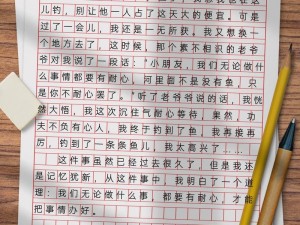 儿钓，别让他一人占了这天大的便宜。可是
过了一会儿，我还是一无所获。我又想换一
个地方去了，这时候，那个素不相识的老爷
爷对我说了一段话：“小朋友，我们无论做什
么事情都要有耐心，河里面不是没有鱼，只
是你不耐心罢了。”听了老爷爷说的话，我恍
然大悟，我这次沉住气耐心等待，果然，功
夫不负有心人，我终于钓到了鱼，我再接再
厉，钓到了一条条鱼儿，我太高兴了……
这件事虽然已经过去很久了，但是我还
是记忆犹新，从这件事中，我明白了一个道
理：我们无论做什么事，都要有耐心，才能
把事情办好。